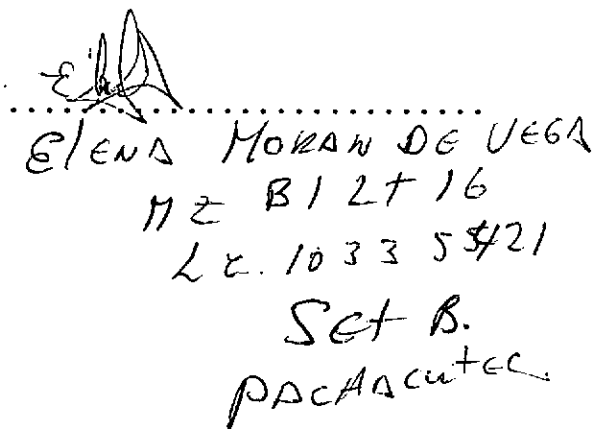 ELENA MORAN DE VEGA
MZ B1 LT 16
L.E. 10335421
Sct B.
PACHACUTEC.